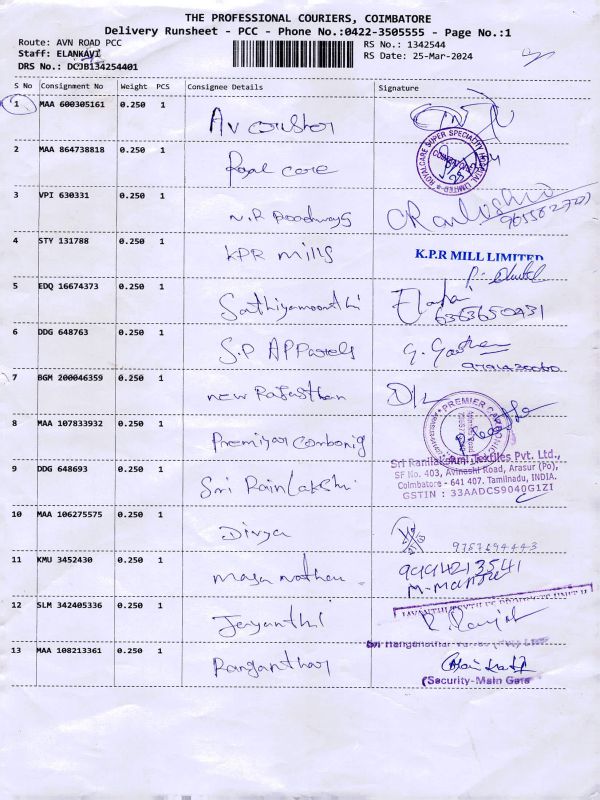 THE PROFESSIONAL COURIERS, COIMBATORE
Delivery Runsheet - PCC - Phone No.:0422-3505555 - Page No.:1
Route: AVN ROAD PCC
RS No.: 1342544
Staff: ELANKAVI
RS Date: 25-Mar-2024
DRS No.: DCJB134254401
S No Consignment No Weight PCS Consignee Details Signature
1 MAA 600305161 0.250 1 AV
2 MAA 864738818 0.250 1 Royal care
ROYALCARE SUPER SPECIALITY HOSPITAL LIMITED
3 VPI 630331 0.250 1 N.R Roadways
4 STY 131788 0.250 1 KPR mills K.P.R MILL LIMITED
5 EDQ 16674373 0.250 1 Sathiyamoorthi
6363650431
6 DDG 648763 0.250 1 S.P APParels
7 BGM 200046359 0.250 1 new Rajasthan
8 MAA 107833932 0.250 1 Premiyar
PREMIER
9 DDG 648693 0.250 1 Sri
Sri Ramlakshmi Textiles Pvt. Ltd.,
SF No. 403, Avinashi Road, Arasur (Po),
Coimbatore - 641 407. Tamilnadu, INDIA.
GSTIN : 33AADCS9040G1ZI
10 MAA 106275575 0.250 1 Divya
9757694443
11 KMU 3452430 0.250 1
9994213541
12 SLM 342405336 0.250 1 Jayanthi
13 MAA 108213361 0.250 1 Ranganthar
(Security-Main Gate